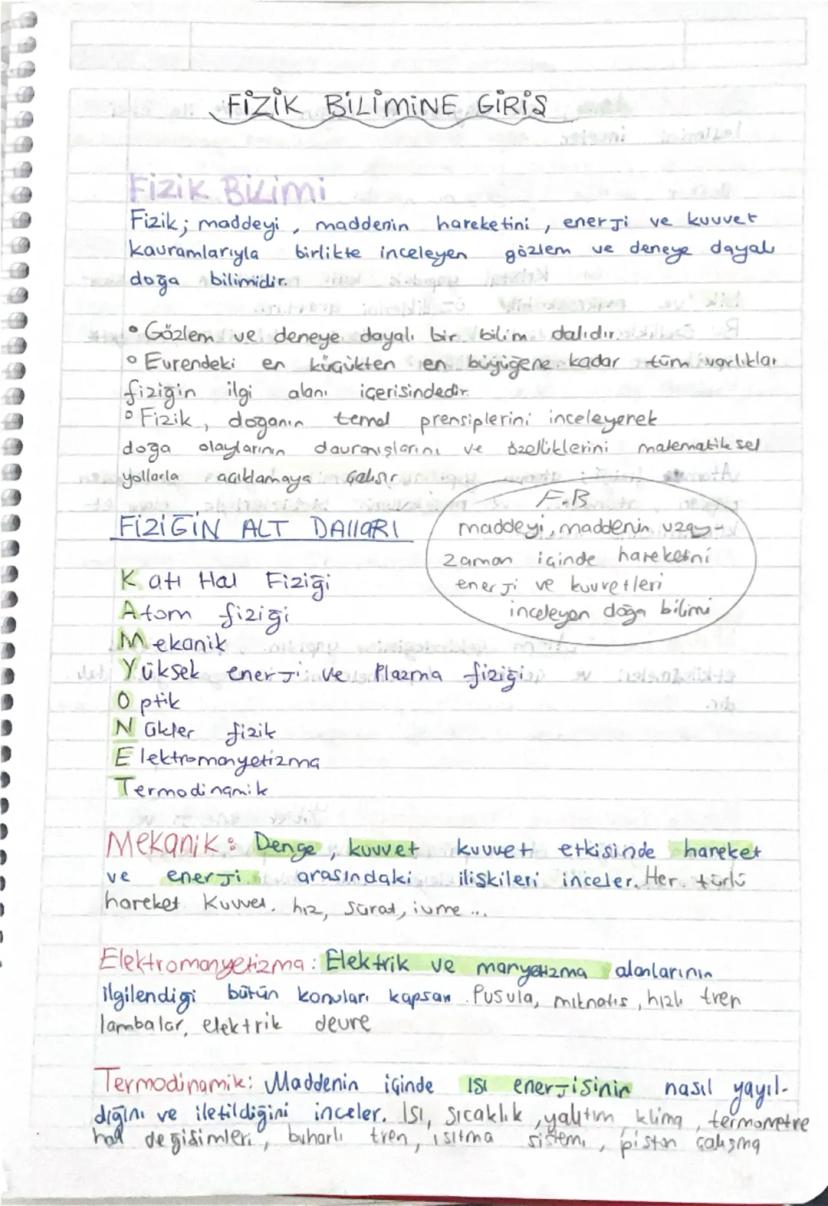 FİZİK BİLİMİNE GİRİŞ
Fizik Bilimi
Fizik; maddeyi, maddenin hareketini, enerji ve kuvvet
kavramlarıyla birlikte inceleyen gözlem ve deneye dayalı
doğa bilimidir.
• Gözlem ve deneye dayalı bir bilim dalıdır.
• Evrendeki en küçükten en büyüğene kadar tüm varlıklar
fiziğin ilgi alanı içerisindedir.
• Fizik, doğanın temel prensiplerini inceleyerek
doğa olaylarının davranışlarını ve özelliklerini matematiksel
yollarla açıklamaya çalışır
FİZİĞİN ALT DALLARI
F.B
maddeyi, maddenin uzay-
zaman içinde hareketini
enerji ve kuvvetleri
inceleyen doğa bilimi
Katı Hal Fiziği
Atom fiziği
Mekanik
Yüksek enerji ve Plazma fiziği
Optik
Nükler fizik
Elektromanyetizma
Termodinamik
Mekanik: Denge, kuvvet kuvvet etkisinde hareket
ve enerji arasındaki ilişkileri inceler. Her türlü
hareket Kuvvet, hız, sürat, ivme ...
Elektromanyetizma: Elektrik ve manyetizma alanlarının
ilgilendiği bütün konuları kapsar. Pusula, mıknatıs, hızlı tren
lambalar, elektrik devre
Termodinamik: Maddenin içinde ısı enerjisinin nasıl yayıl-
dığını ve iletildiğini inceler. Isı, sıcaklık, yalıtım, klima, termometre
hal değişimleri, buharlı tren, ısıtma sistemi, piston çalışma